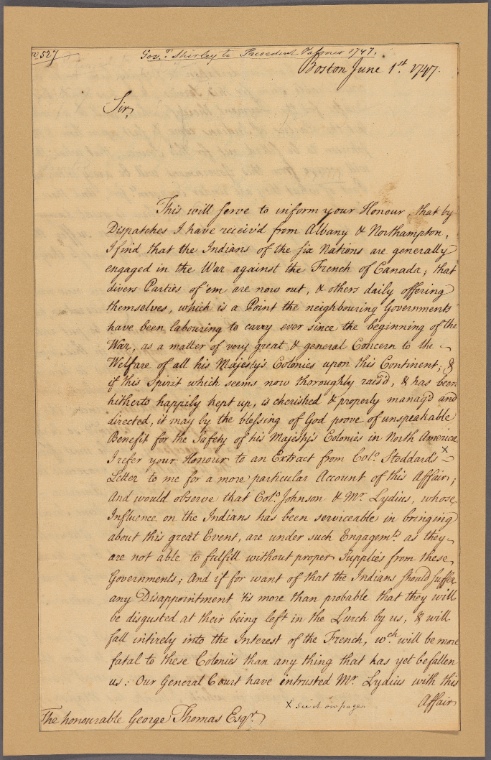 Gov.r Shirley to President Palmer 1747.
Boston June 1.st 1747.
Sir,
This will serve to inform your Honour, that by
Dispatches I have receiv'd from Albany & Northampton,
I find that the Indians of the six Nations are generally
engaged in the War against the French of Canada; that
divers Parties of em are now out, & others daily offering
themselves, which is a Point the neighbouring Governments
have been labouring to carry ever since the beginning of the
War, as a matter of very great & general Concern to the
Welfare of all his Majesty's Colonies upon this Continent, &
if this Spirit which seems now thoroughly rais'd, & has been
hitherto happily kept up, is cherished & properly manag'd and
directed, it may by the blessing of God prove of unspeakable
Benefit for the Safety of his Majesty's Colonies in North America
I refer your Honour to an Extract from Col.o Stoddards x
Letter to me for a more particular Account of this Affair;
And would observe that Col.o Johnson & Mr. Lydius, whose
Influence on the Indians has been serviceable in bringing
about this great Event, are under such Engagem.ts as they
are not able to fulfill without proper Supplies from these
Governments; And if for want of that the Indians should suffer
any Disappointment tis more than probable that they will
be disgusted at their being left in the Lurch by us, & will
fall intirely into the Interest of the French, w.ch will be more
fatal to these Colonies than any thing that has yet befallen
us: Our General Court have intrusted Mr. Lydius with this
Affair
x
The honourable George Thomas Esq.r